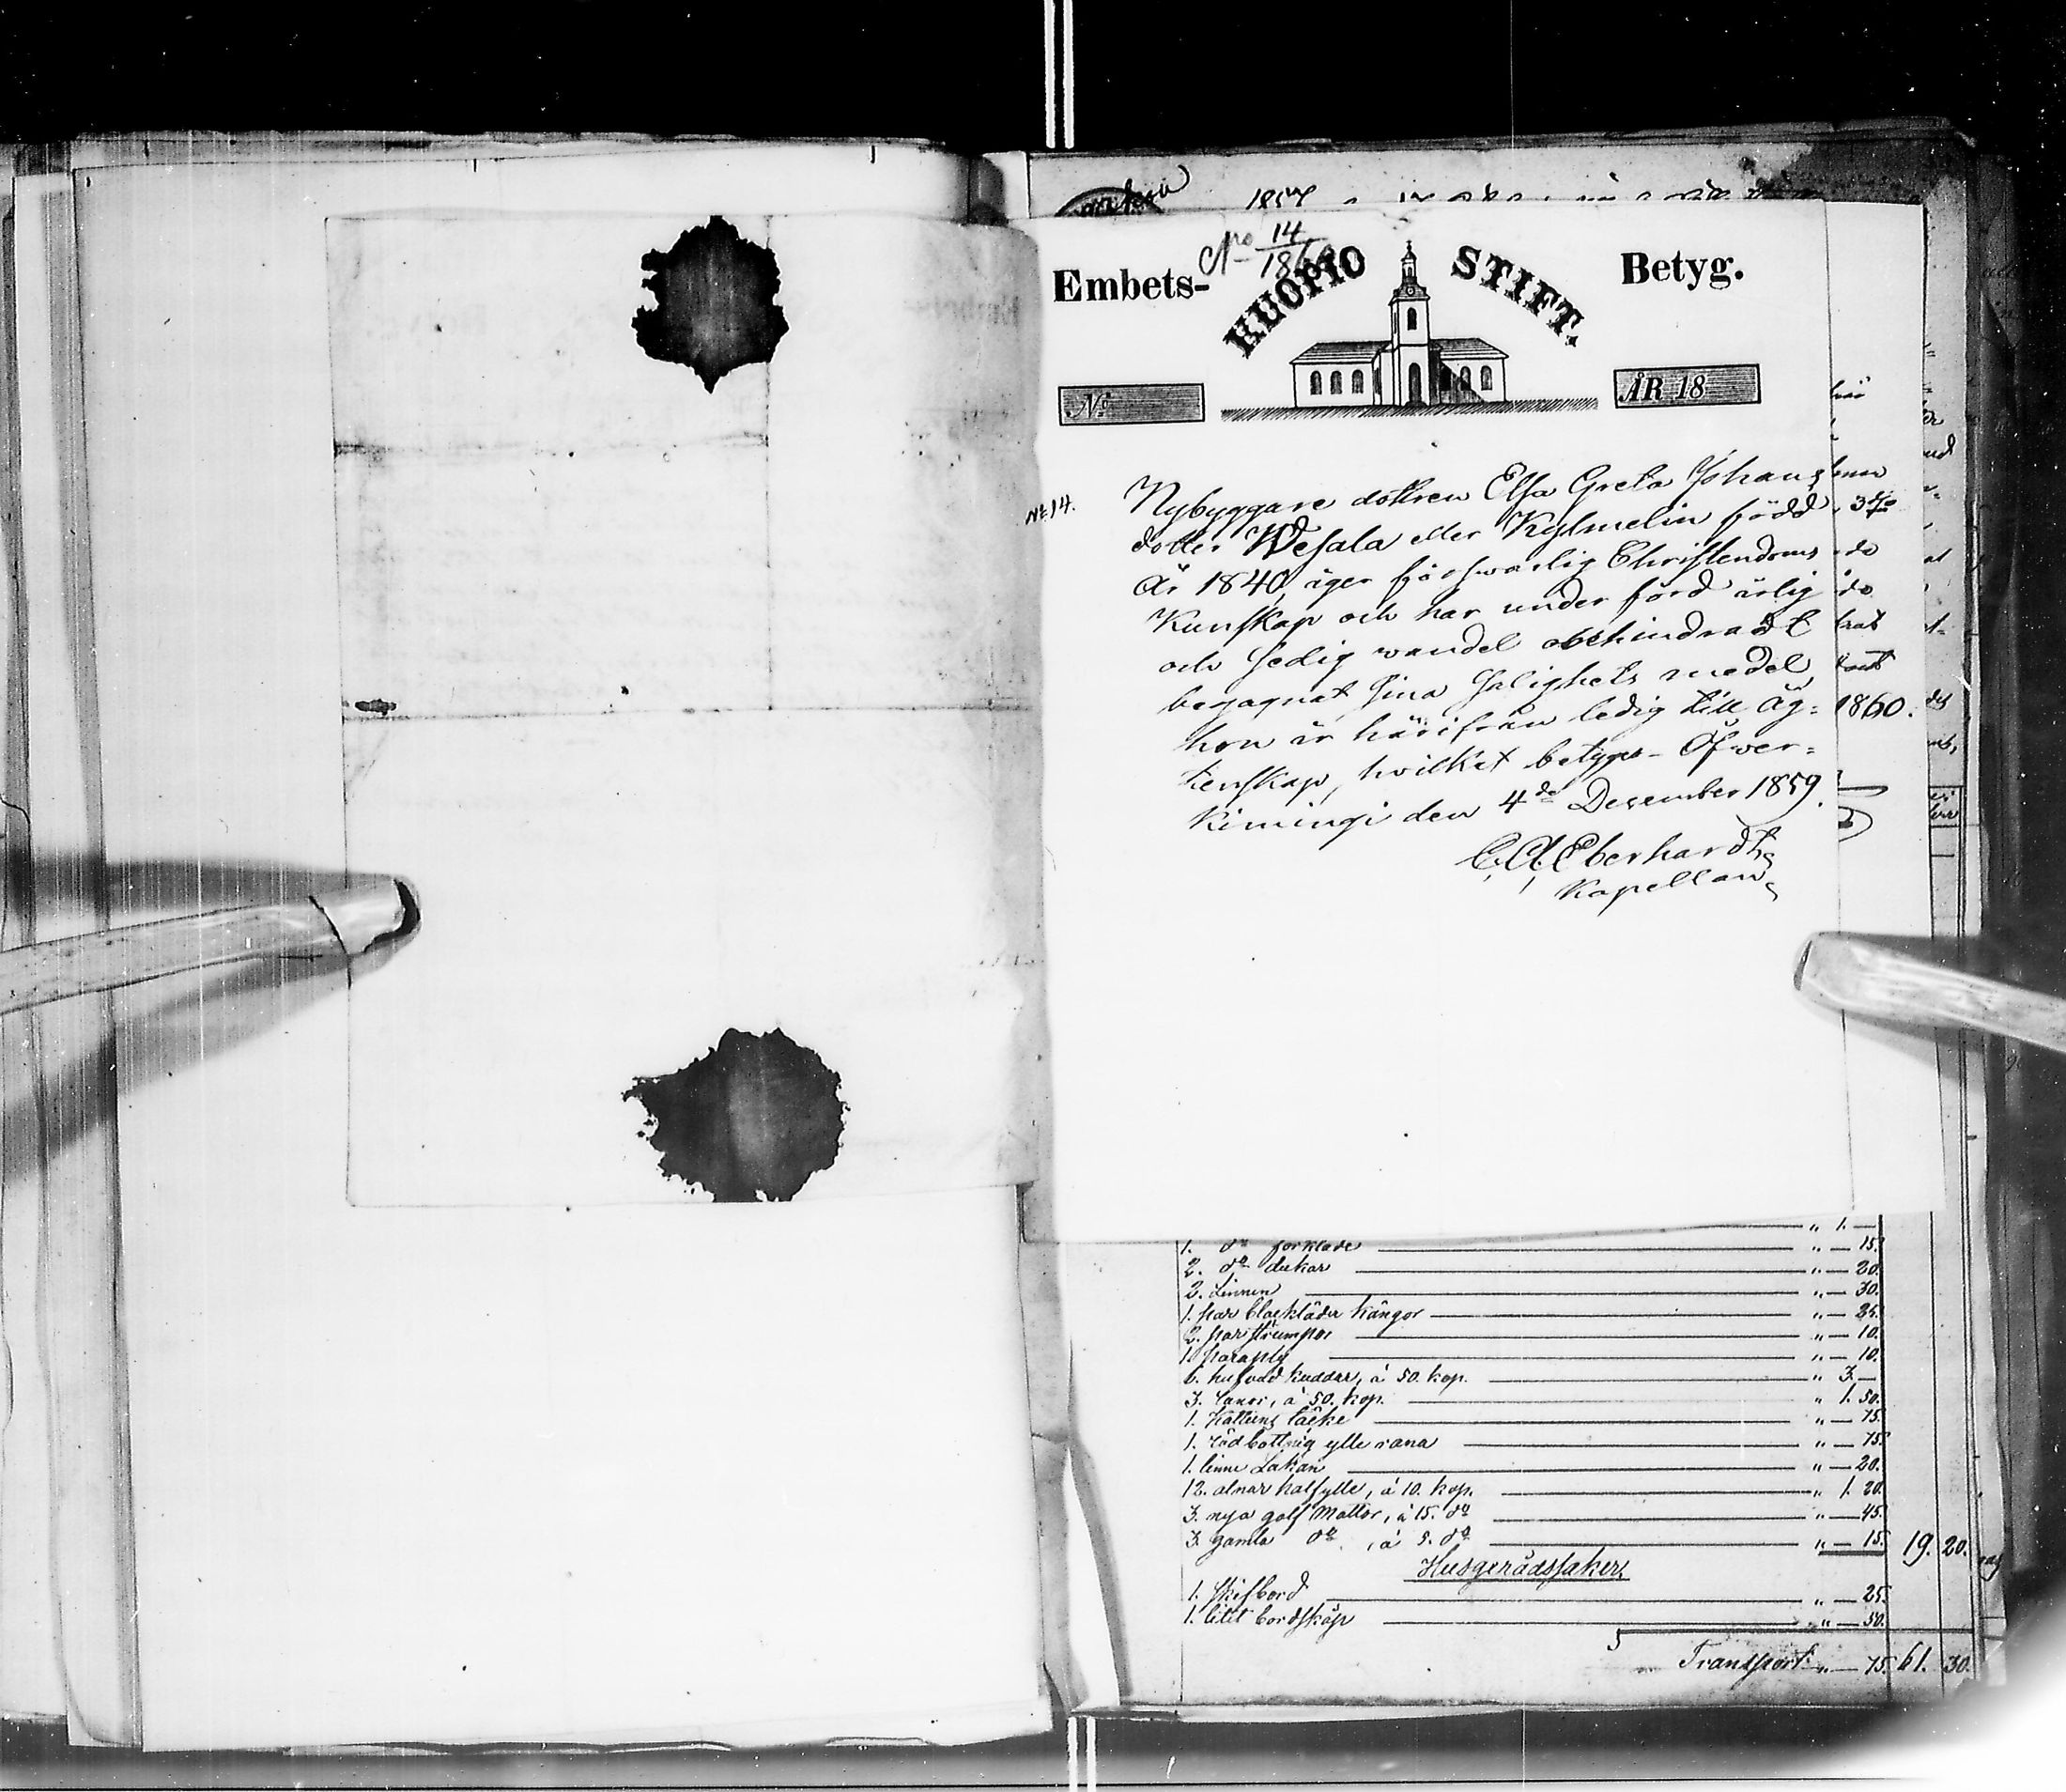 1857
No 14
1860
Embets-
KUOPIO STIFT.
Betyg.
No
ÅR 18
No 14.
Nybyggare dottren Elsa Greta Johans
dotter Wesala eller Kylmelin född
År 1840, äger försvarlig Christendoms
Kunskap och har under förd ärlig
och sedig wandel obehindradt
begagnat sina salighets medel,
hon är härifrån ledig till äg-
tenskap, hvilket betygas. Öfver-
kimingi den 4de Desember 1859.
C. A. Eberhardt,
Kapellan,
1860.
" 1. —
1. do förkläde " — 15.
2. do dukar " — 20.
2. Linnen " — 30.
1. par blackläder kängor " — 25.
2. par strumpor " — 10.
1. paraply " — 10.
6. hufvud kuddar, á 50. kop. " 3. —
3. , á 50. kop. " 1. 50.
1. Kattuns täcke " — 75.
1. rödbottnig ylle rana " — 75.
1. linne Lakan " — 20.
12. alnar halfylle, á 10. kop. " 1. 20.
3. nya golf Mattor, á 15. do " — 45.
3. gamla do , á 5. do " — 15. 19. 20.
Husgerådssaker,
1. skifbord " — 25.
1. litet bordskåp " — 50.
Transport " — 75. 61. 30.